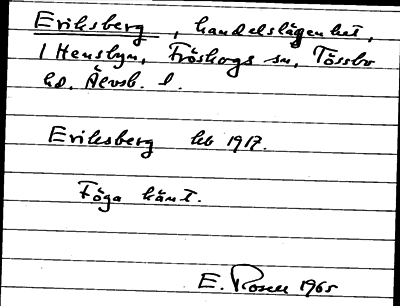 Eriksberg, handelslägenhet,
i Hensbyn, Fröskogs sn, Tössbo
hd. Älvsb. l.
Eriksberg hb 1917.
Föga känt.
E. Rosell 1965